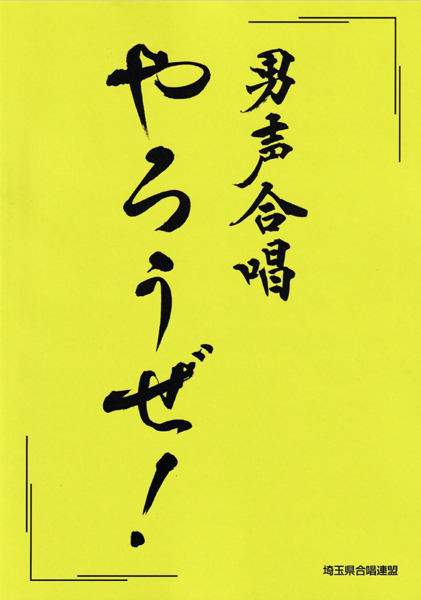 男声合唱
やろうぜ!
埼玉県合唱連盟